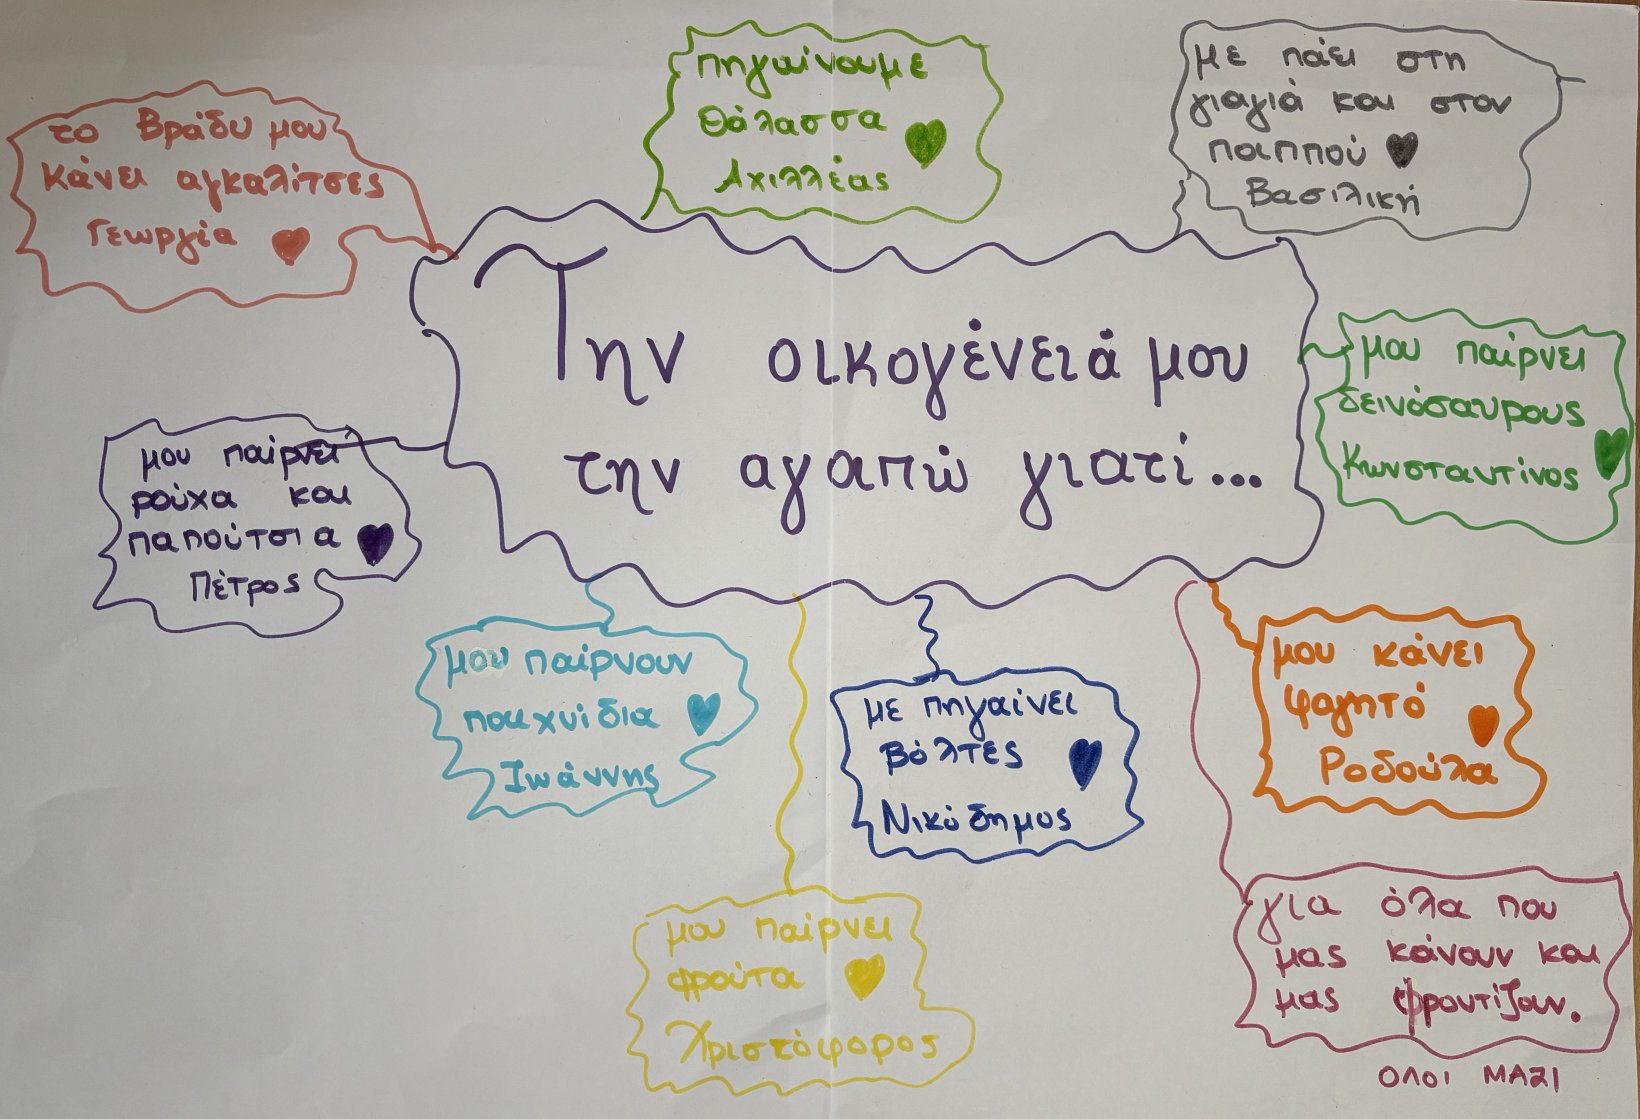 Την οικογένειά μου
την αγαπώ γιατί...
το Βράδυ μου
κάνει αγκαλίτσες
Γεωργία
πηγαίνουμε
Θάλασσα
Αχιλλέας
με πάει στη
γιαγιά και στον
παππού
Βασιλική
μου παίρνει
δεινόσαυρους
Κωνσταντίνος
μου παίρνει
ρούχα και
παπούτσια
Πέτρος
μου παίρνουν
παιχνίδια
Ιωάννης
με πηγαίνει
Βόλτες
Νικόδημος
μου κάνει
φαγητό
Ροδούλα
μου παίρνει
φρούτα
Χριστόφορος
για όλα που
μας κάνουν και
μας φροντίζουν.
ΟΛΟΙ ΜΑΖΙ